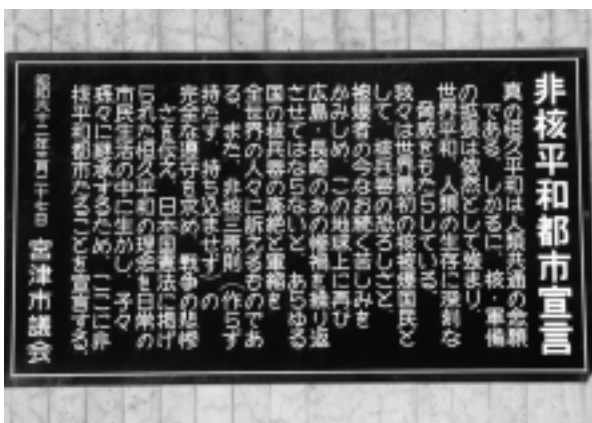 非核平和都市宣言
真の恒久平和は人類共通の念願
である。しかるに、核・軍備
の拡張は依然として強まり、
世界平和、人類の生存に深刻な
脅威をもたらしている。
我々は世界最初の核被爆国民と
して、核兵器の恐ろしさと、
被爆者の今なお続く苦しみを
かみしめ、この地球上に再び
広島・長崎のあの惨禍を繰り返
させてはならないと、あらゆる
国の核兵器の廃絶と軍縮を
全世界の人々に訴えるものであ
る。また、非核三原則(作らず
持たず、持ち込ませず)の
完全な遵守を求め、戦争の悲惨
さを伝え、日本国憲法に掲げ
られた恒久平和の理念を日常の
市民生活の中に生かし、子々
孫々に継承するため、ここに非
核平和都市たることを宣言する。
昭和六十二年三月二十七日 宮津市議会